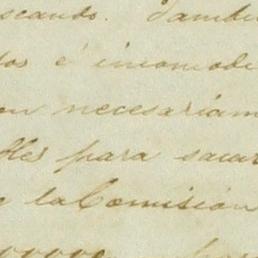 scando. Tambi
dos é incomode
en necesariam
bles para sacar
e la Comisión